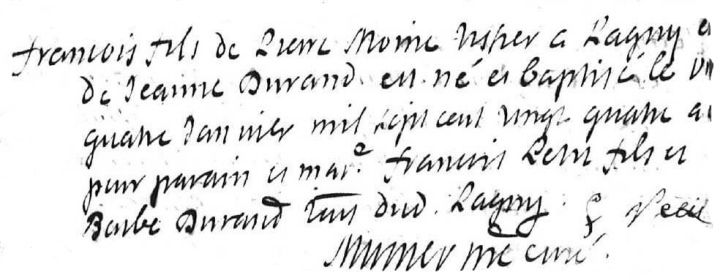 francois fils de Pierre Moine a Lagny
de Jeanne Durand est né et baptisé le
quatre Janvier mil sept cent vingt quatre a
pour parain et mar.e francois Petit fils et
Barbe Durand tous dud. Lagny
curé.